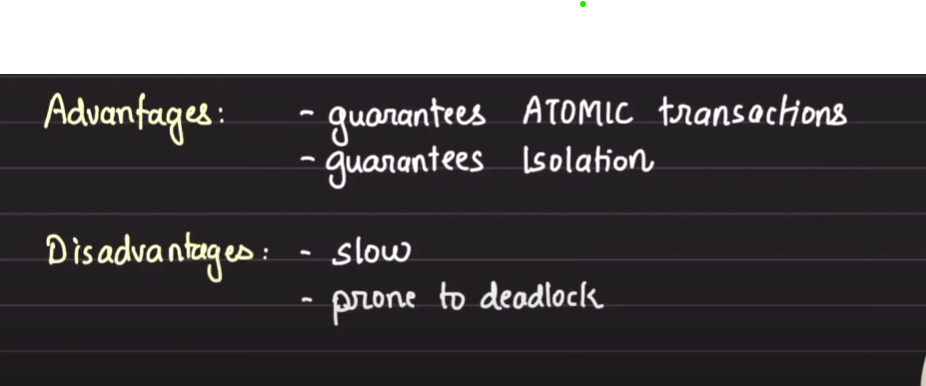 Advantages: - guarantees ATOMIC transactions
- guarantees Isolation
Disadvantages: - slow
- prone to deadlock